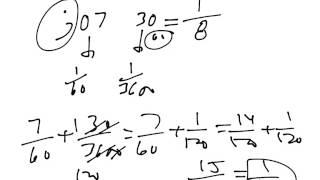 ; 07 30 = 1/8
60
1/60 1/3600
7/60 + 30/3600 = 7/60 + 1/120 = 14/120 + 1/120
120
15 = 1